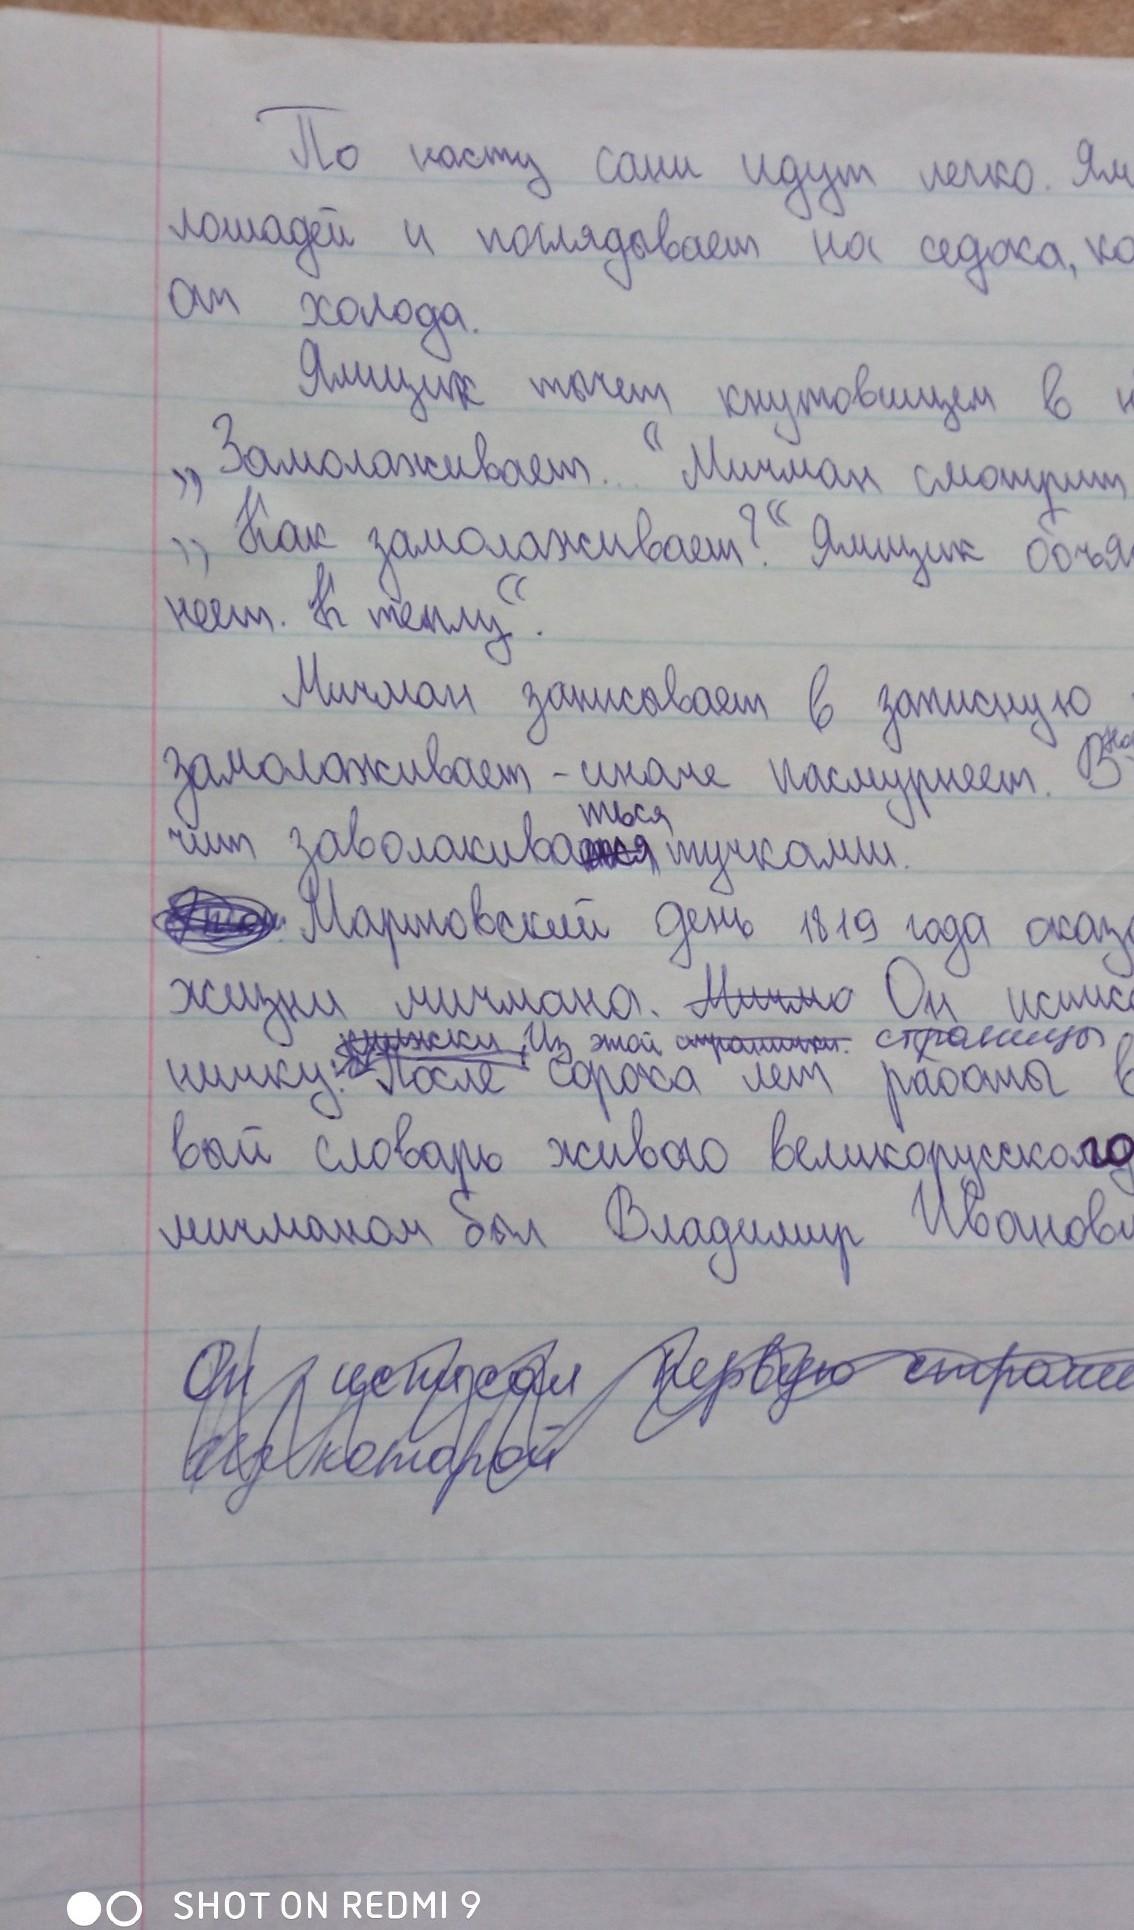 По насту сани идут легко. Ям
лошадей и поглядывает на седока, ко
от холода.
Ямщик тычет кнутовищем в н
„Замолаживает..." Мичман смотрит
„Как замолаживает?" Ямщик объя
неет. К теплу".
Мичман записывает в записную
замолаживает - иначе пасмурнеет. В
ться
чит заволакива тучками.
Мартовский день 1819 года оказа
жизни мичмана. Мичма Он исписа
книжки. Из этой странички. страницы
ничку. После сорока лет работы в
вый словарь живого великорусского
мичманом был Владимир Иванови
Он исписал первую страни
которой
SHOT ON REDMI 9